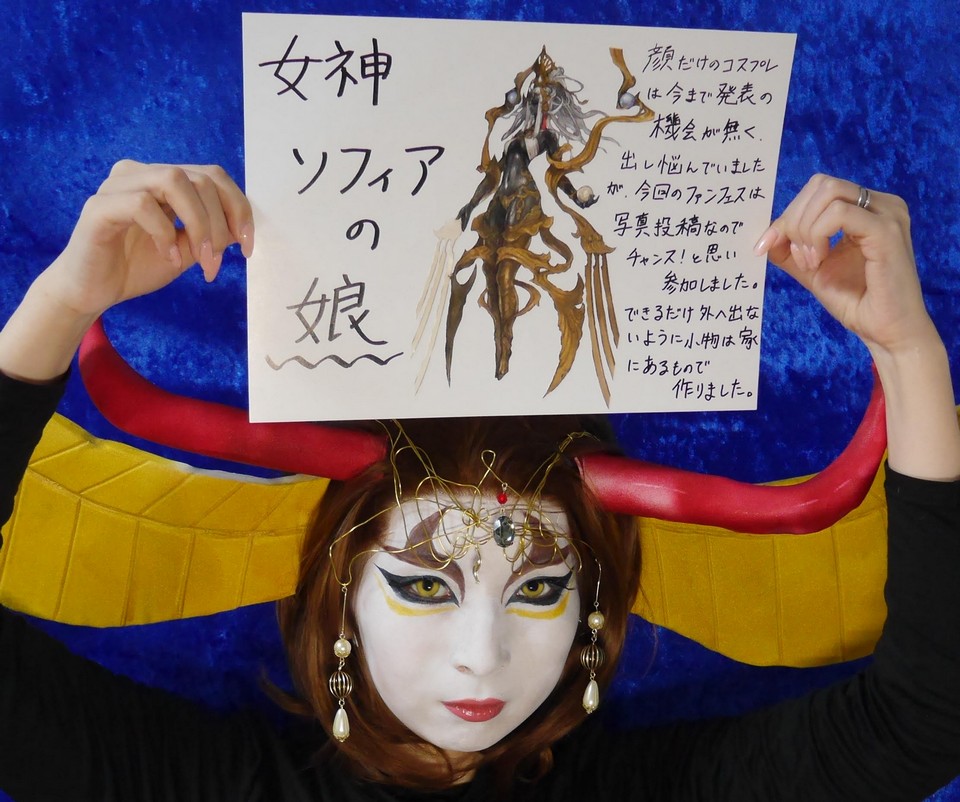 女神
ソフィア
の
娘
顔だけのコスプレ
は今まで発表の
機会が無く、
出し悩んでいました
が、今回のファンフェスは
写真投稿なので
チャンス!と思い
参加しました。
できるだけ外へ出な
いように小物は家
にあるもので
作りました。